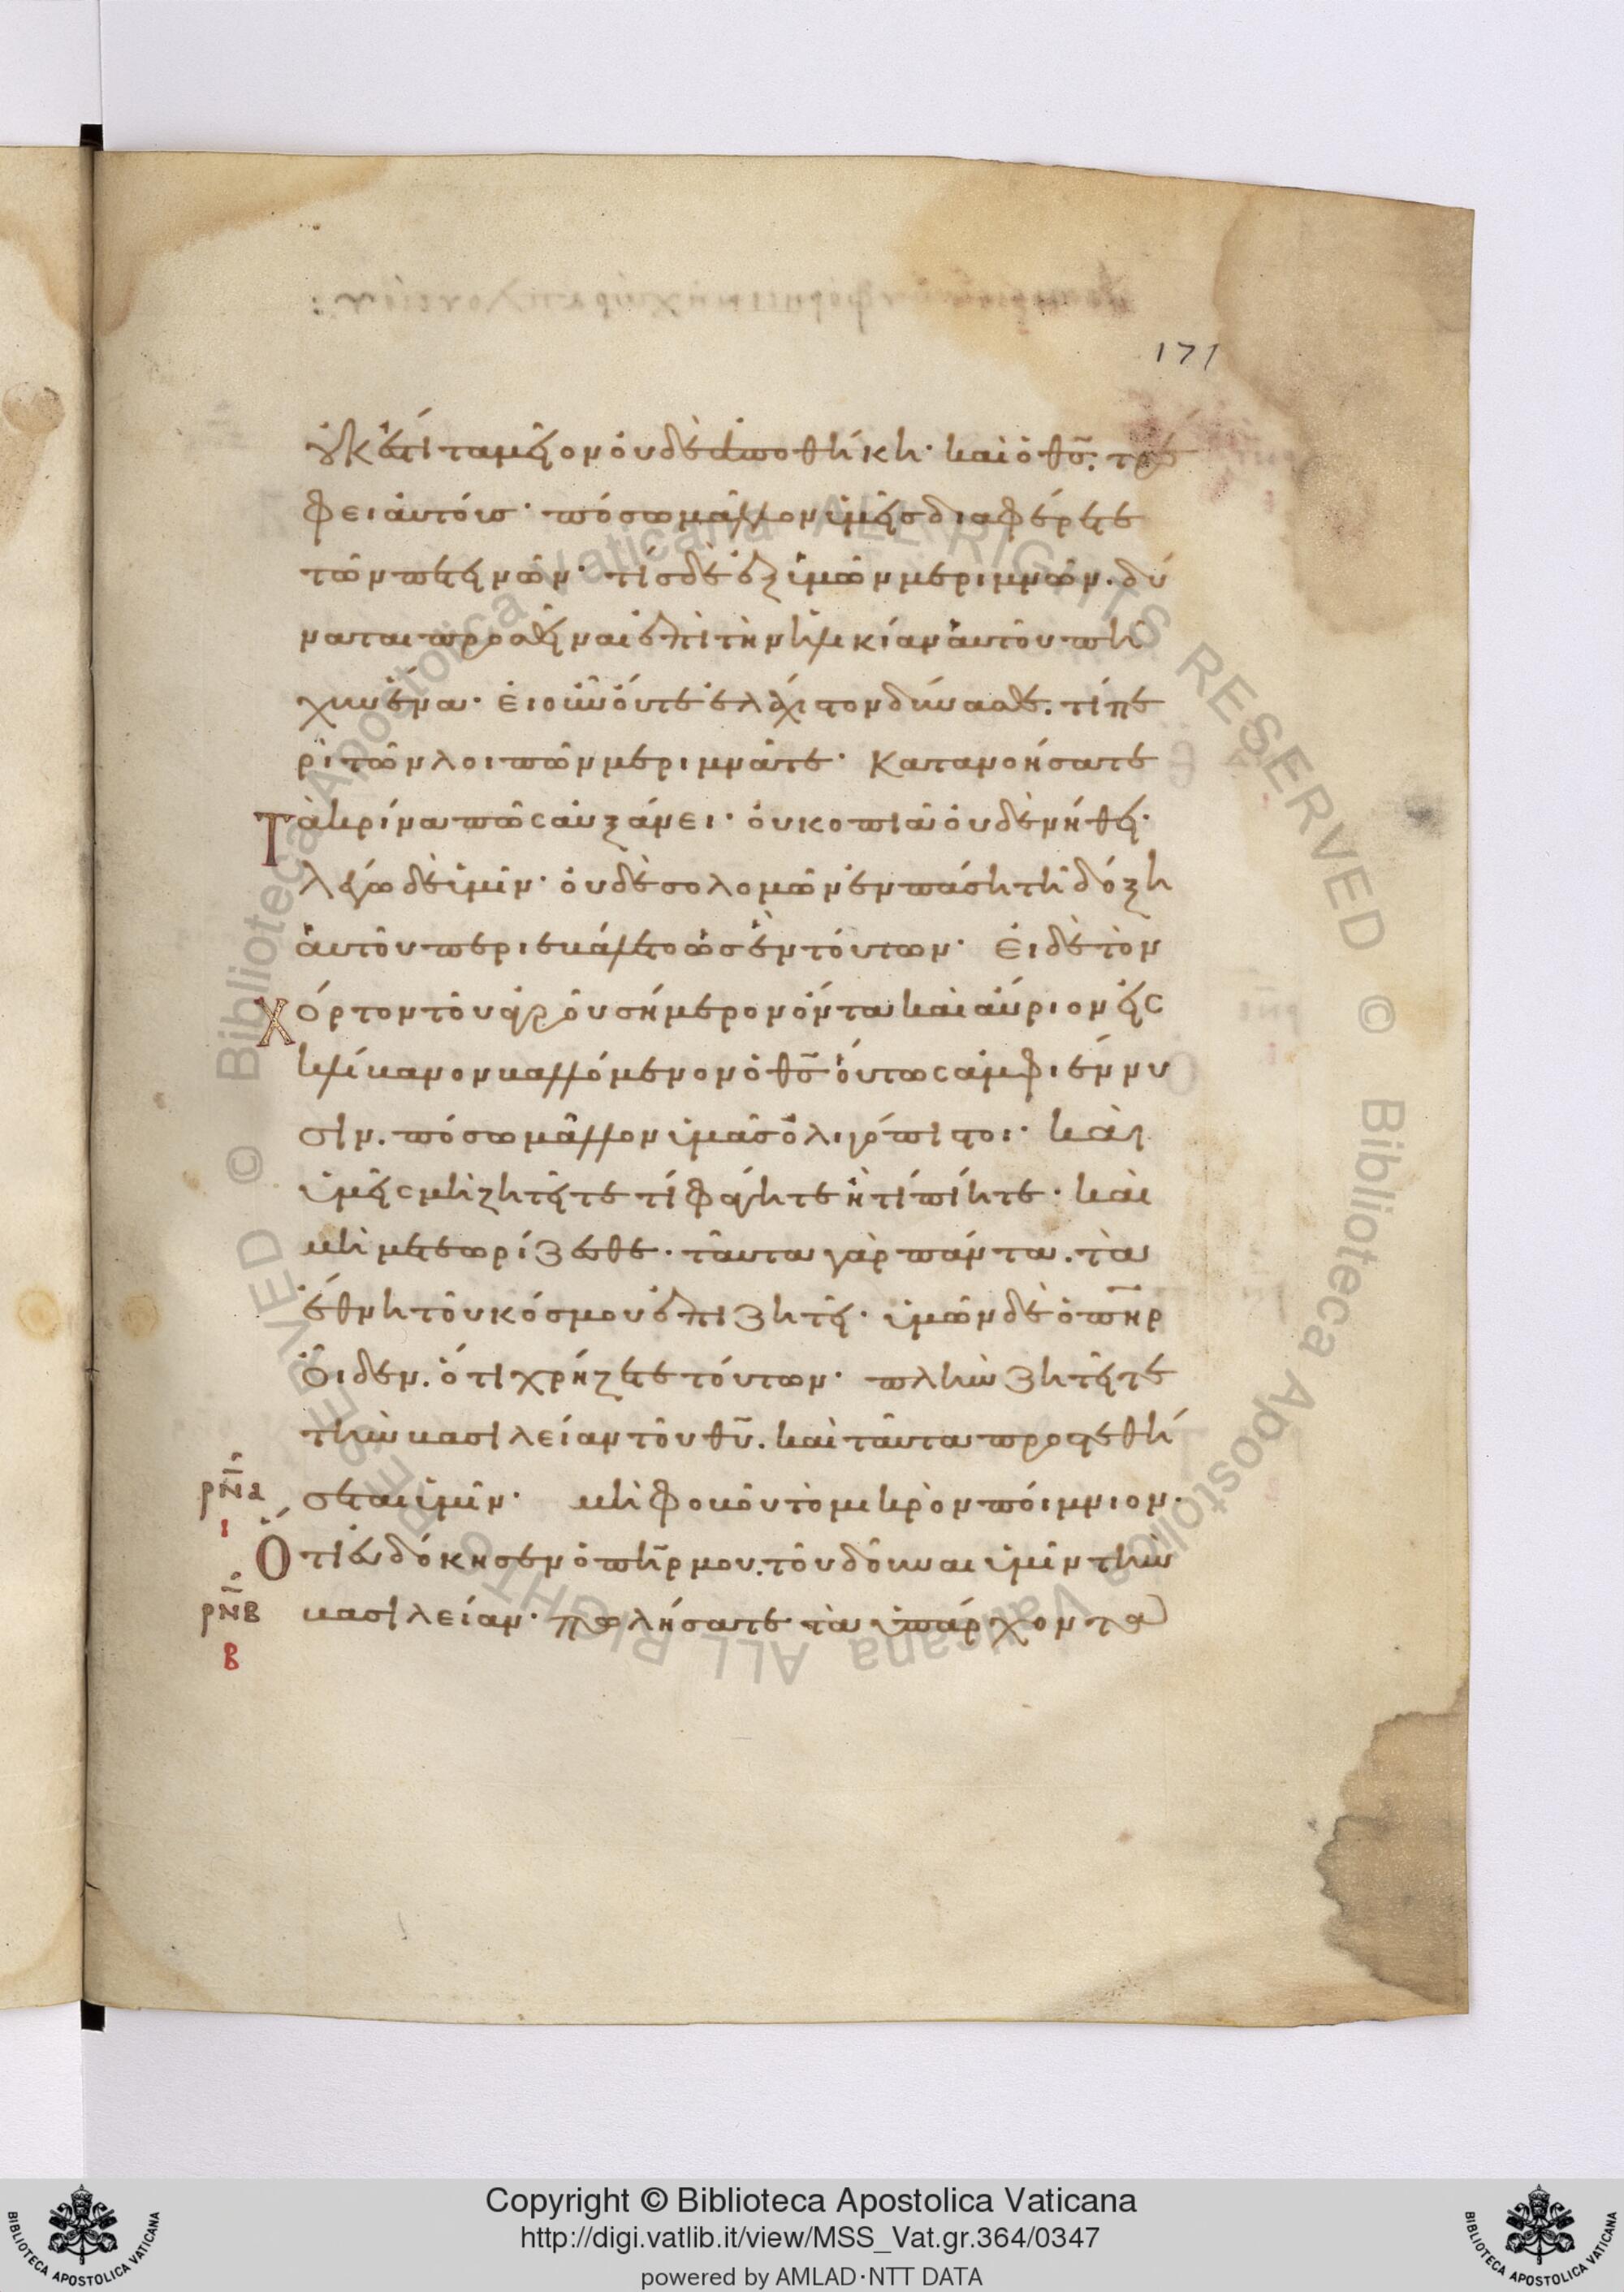 171
οὐκ ἔστι ταμεῖον οὐδὲ ἀποθήκη· καὶ ὁ θς̅. τρέ
φει αὐτούς· πόσω μᾶλλον ὑμεῖς διαφέρετε
τῶν πετεινῶν· τίς δὲ ἐξ ὑμῶν μεριμνῶν. δύ
ναται προσθεῖναι ἐπὶ τὴν ἡλικίαν ἀυτοῦ πῆ
χυν ἕνα· εἰ οὖν οὔτε ἐλάχιστον δύνασθε. τί πε
ρὶ τῶν λοιπῶν μεριμνᾶτε· Κατανοήσατε
Τὰ κρίνα πῶς αὐξάνει· οὐ κοπιᾶ οὐδὲ νήθει·
λέγω δὲ ὑμῖν· οὐδὲ σολομῶν ἐν πάση τῆ δόξη
ἀυτοῦ περιεβάλετο ὡς ἓν τούτων· Εἰ δὲ τὸν
Χόρτον τοῦ ἀγροῦ σήμερον ὄντα καὶ αὔριον εἰς
κλίβανον βαλλόμενον ὁ θς̅ οὕτως ἀμφιέννυ
σιν. πόσω μᾶλλον ὑμᾶς ὀλιγόπιστοι· καὶ
ὑμεῖς μὴ ζητεῖτε τί φάγητε ἢ τί πίητε· καὶ
μὴ μετεωρίζεσθε· ταῦτα γὰρ πάντα. τὰ
ἔθνη τοῦ κόσμου ἐπιζητεῖ· ὑμῶν δὲ ὁ πη̅ρ
οἶδεν. ὅτι χρήζετε τούτων· πλὴν ζητεῖτε
τὴν βασιλείαν τοῦ θυ̅. καὶ ταῦτα προστεθή
ρν̅α σεται ὑμῖν· μὴ φοβοῦ τὸ μικρὸν ποίμνιον·
ι
Ὅτι εὐδόκησεν ὁ πη̅ρ μου. τοῦ δοῦναι ὑμῖν τὴν
ρν̅β βασιλείαν· πωλήσατε τὰ ὑπάρχοντα
β
Copyright © Biblioteca Apostolica Vaticana
http://digi.vatlib.it/view/MSS_Vat.gr.364/0347
powered by AMLAD·NTT DATA
BIBLIOTECA APOSTOLICA VATICANA
BIBLIOTECA APOSTOLICA VATICANA
© Biblioteca Apostolica Vaticana ALL RIGHTS RESERVED © Biblioteca Apostolica Vaticana ALL RIGHTS RESERVED